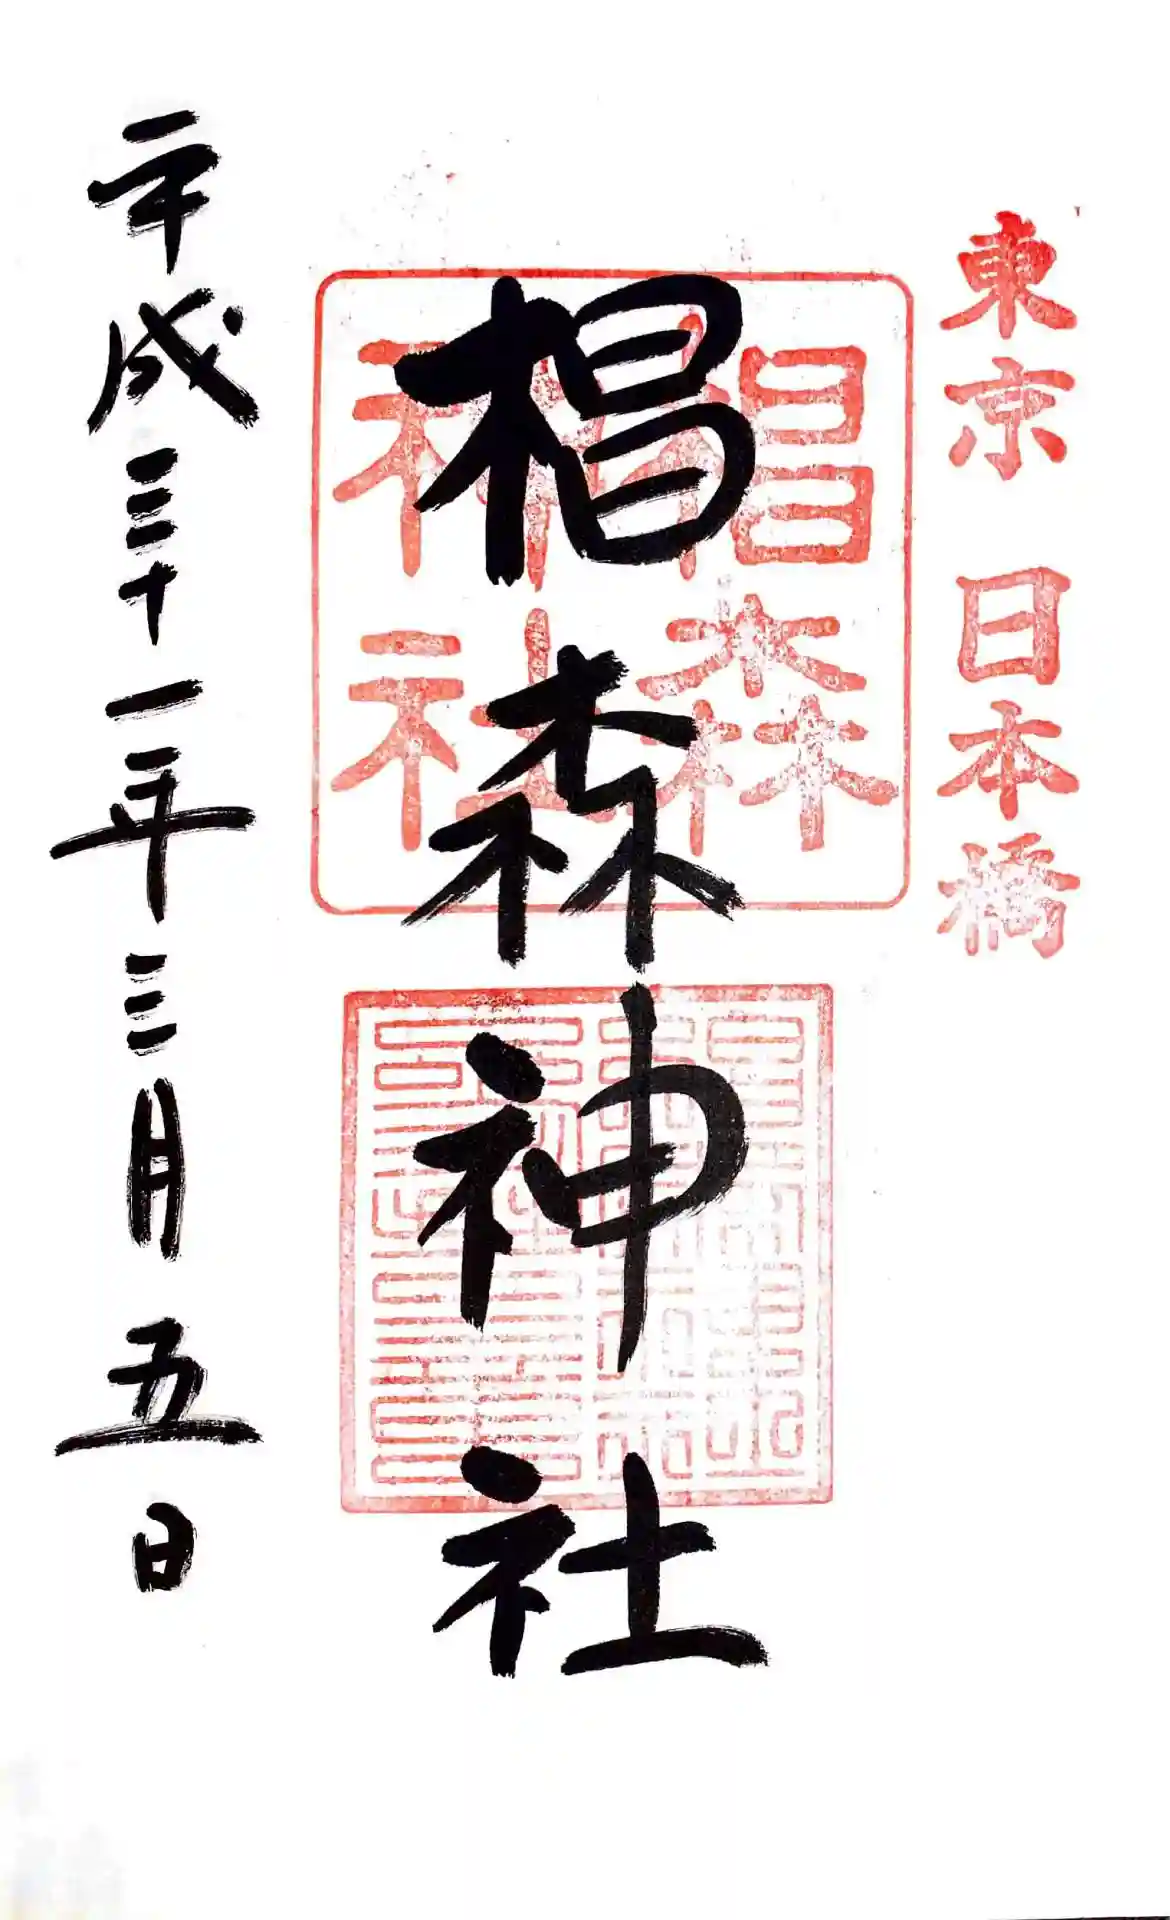 東京 日本橋
椙森神社
椙森
神社
平成三十一年三月五日